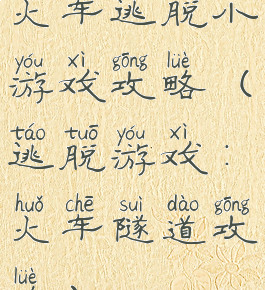 火车逃脱小
yóu xì gōng lüè
游戏攻略（
táo tuō yóu xì
逃脱游戏：
huǒ chē suì dào gōng
火车隧道攻
lüè